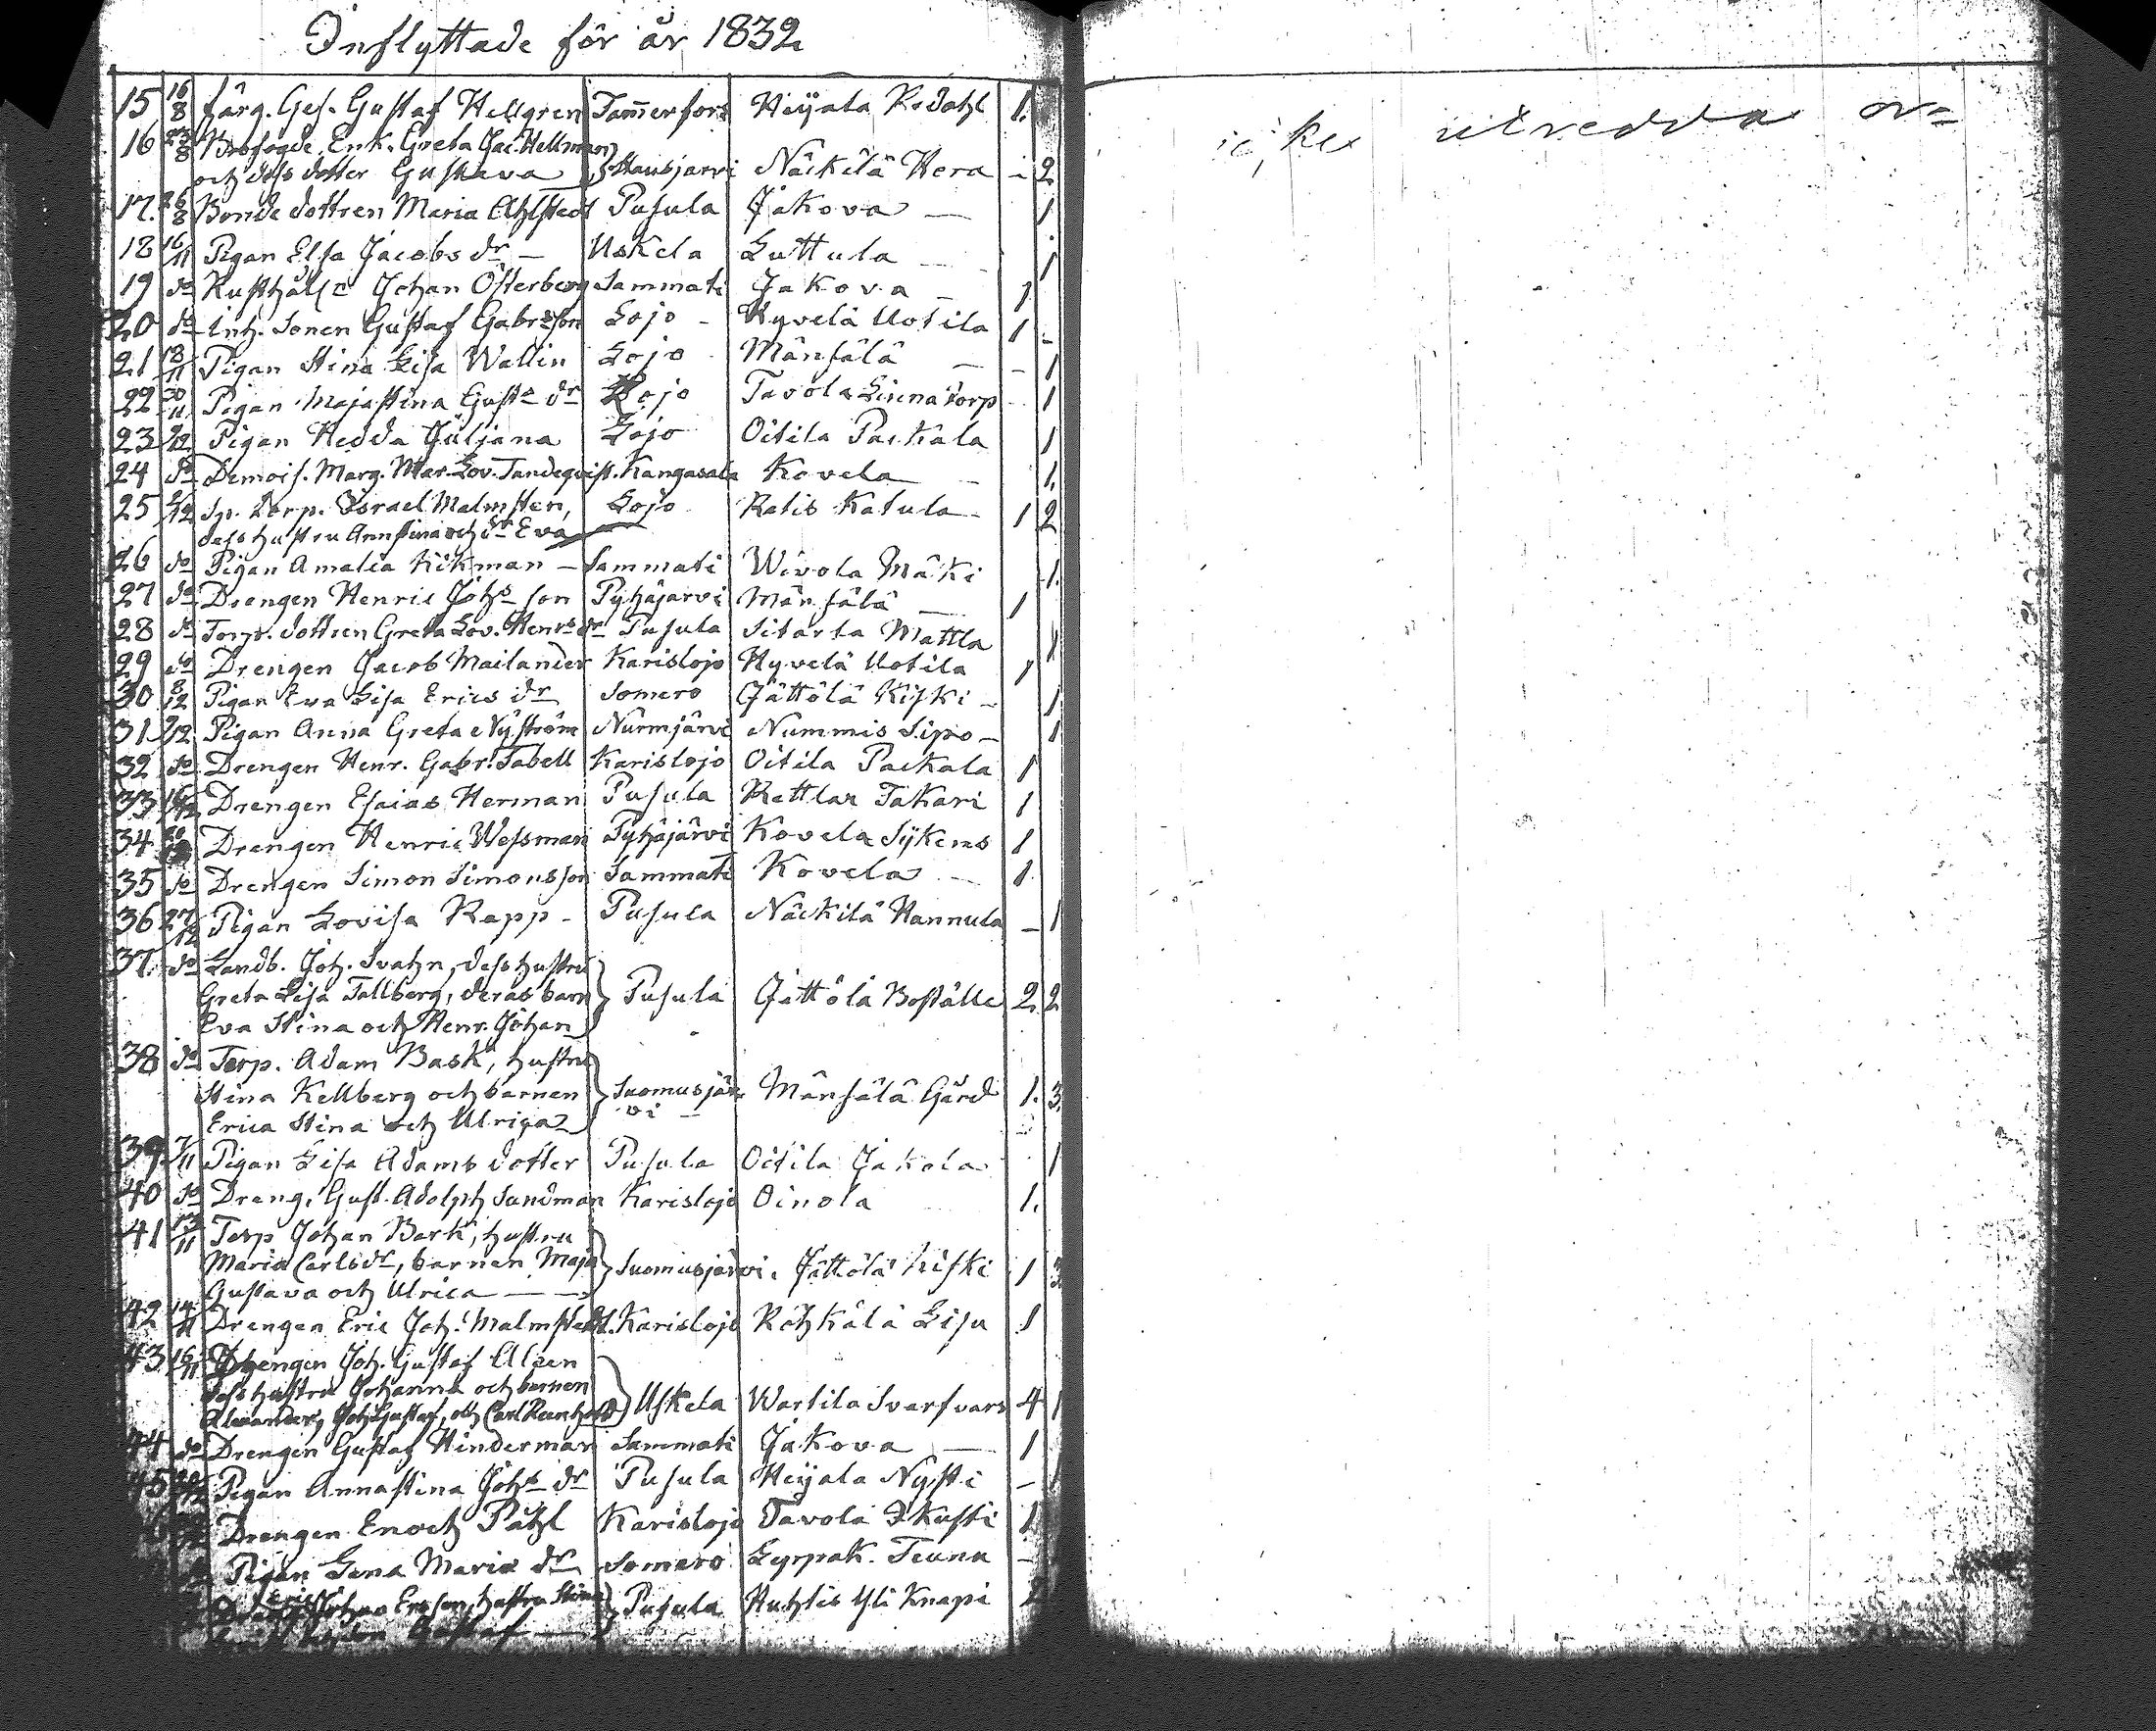 Inflyttade för år 1832
15 16/8 färg. Ges. Gustaf Hellgren Tam̄erfors Heijala Rodahl 1.
16 23/8 Brofogde Enk. Greta Jac. Hellman
och dess dotter Gustava } Hausjarvi Näckilä Hera - 2
17. 26/8 Bonde dottren Maria Ahlstedt Pusula Jakova — 1
18 16/11 Pigan Elsa Jacobs dr — Uskela Luttula — 1
19 do Rusthålls Johan Österberg Sammati Jakova — 1
20 do Inh. Sonen Gustaf Gabrsson Lojo - Hyvelä Uotila 1 -
21 18/11 Pigan Stina Lisa Wallin Lojo Mänsälä — - 1
22 30/11 Pigan Majastina Gusts dr Lojo Tavola Linna torp - 1
23 2/12 Pigan Hedda Juljana Lojo Oitila Packala 1
24 do Demois. Marg. Mar. Lov. Tandeqvist. Kangasala Kovela — 1.
25 2/12 Sp. Torp. Israel Malmsten, Lojo Ratis Katula - 1 2
dess hustru Annstina och dr Eva
26 do Pigan Amalia Kikman — Sammati Wivola Mäki - 1.
27 do Drengen Henric Johs son Pyhäjärvi Mänsälä — 1
28 do Torp. dottren Greta Lov. Henrs dr Pusula Sitarla Mattla 1
29 do Drengen Jacob Mailander Karislojo Hyvelä Uotila 1
30 8/12 Pigan Eva Lisa Erics dr Somero Jättölä Kiski - 1
31 9/12 Pigan Anna Greta Nyström Nurmjärvi Nummis Sipo - 1
32 do Drengen Henr. Gabr. Tabell Karislojo Oitila Packala 1
33 16/12 Drengen Esaias Herman Pusula Rettlax Takari 1
34 Drengen Henric Wessman Pyhäjärvi Kovela Sykens 1
35 do Drengen Simon Simonsson Sammati Kovela — 1
36 27/12 Pigan Lovisa Rapp - Pusula Näckilä Hannula - 1
37. do Landb. Joh. Svahn, dess hustru
Greta Lisa Tallberg, deras barn } Pusula Jättölä Boställe 2 2
Eva Stina och Henr. Johan
38 do Torp. Adam Bask, hustru
Stina Kellberg och barnen } Suomusjär Mänsälä Gård 1. 3.
Erica Stina och Ulrica vi —
39. 7/11 Pigan Lisa Adams dotter Pusula Oitila Jakola 1
40 do Dreng. Gust. Adolph Sundman Karislojo Oinola 1.
41 13/11 Torp Johan Bark, hustru
Maria Carlsdr, barnen Maja } Suomusjärvi. Jättölä Kiski 1 3
Gustava och Ulrica — —
42 14/11 Drengen Eric Joh. Malmstedt. Karislojo Röhkälä Lisu 1
43 16/11 Drengen Joh. Gustaf Alsen
dess hustru Johanna och barnen
Alexander, Joh Gustaf, och Carl Reinhold } Uskela Wartila Svarfvars 4 1
44 do Drengen Gustaf Hinderman Sammati Jakova — 1
45 Pigan Annastina Johs dr Pusula Heijala Nysti - 1
Drengen Enoch Påhl Karislojo Tavola Ikusti 1
Pigan Lena Maria dr Somero Lyrpak. Teunu -
Johan Ersson, hustru Stina } Pusula Huhtis Yli Knapi 2
Gustaf —
icke utredda